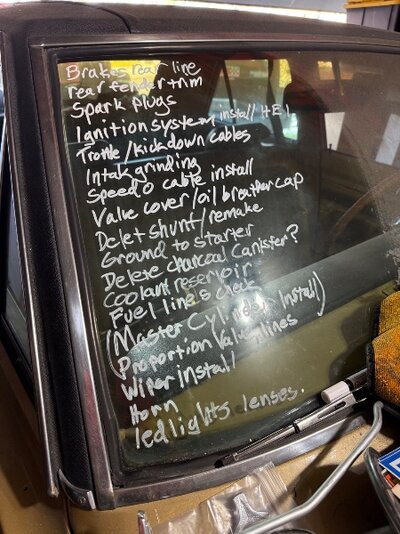 Brakes rear line
rear fender trim
Spark plugs
Ignition system install HEI
Trottle/kickdown cables
Intak grinding
Speedo cable install
Valve cover/oil breather cap
Delet shunt/remake
Ground to starter
Delete charcoal Canister?
Coolant reservoir
Fuel lines check
(Master Cylinder Install)
Proportion Valve lines
Wiper install
Horn
led lights lenses.